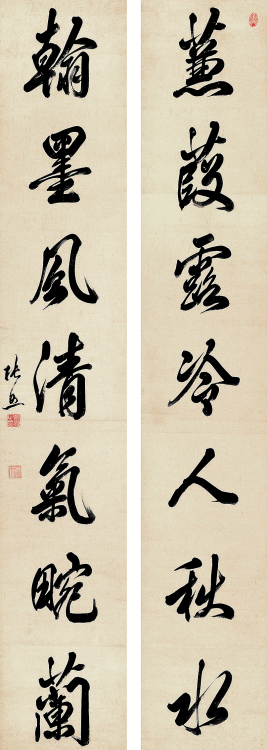 蒹葭露冷人秋水
翰墨風清氣畹蘭
張照